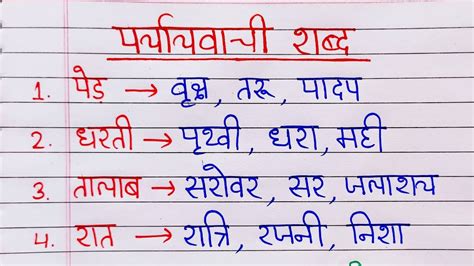 पर्यायवाची शब्द
1. पेड़ → वृक्ष, तरू, पादप
2. धरती → पृथ्वी, धरा, मही
3. तालाब → सरोवर, सर, जलाशय
4. रात → रात्रि, रजनी, निशा